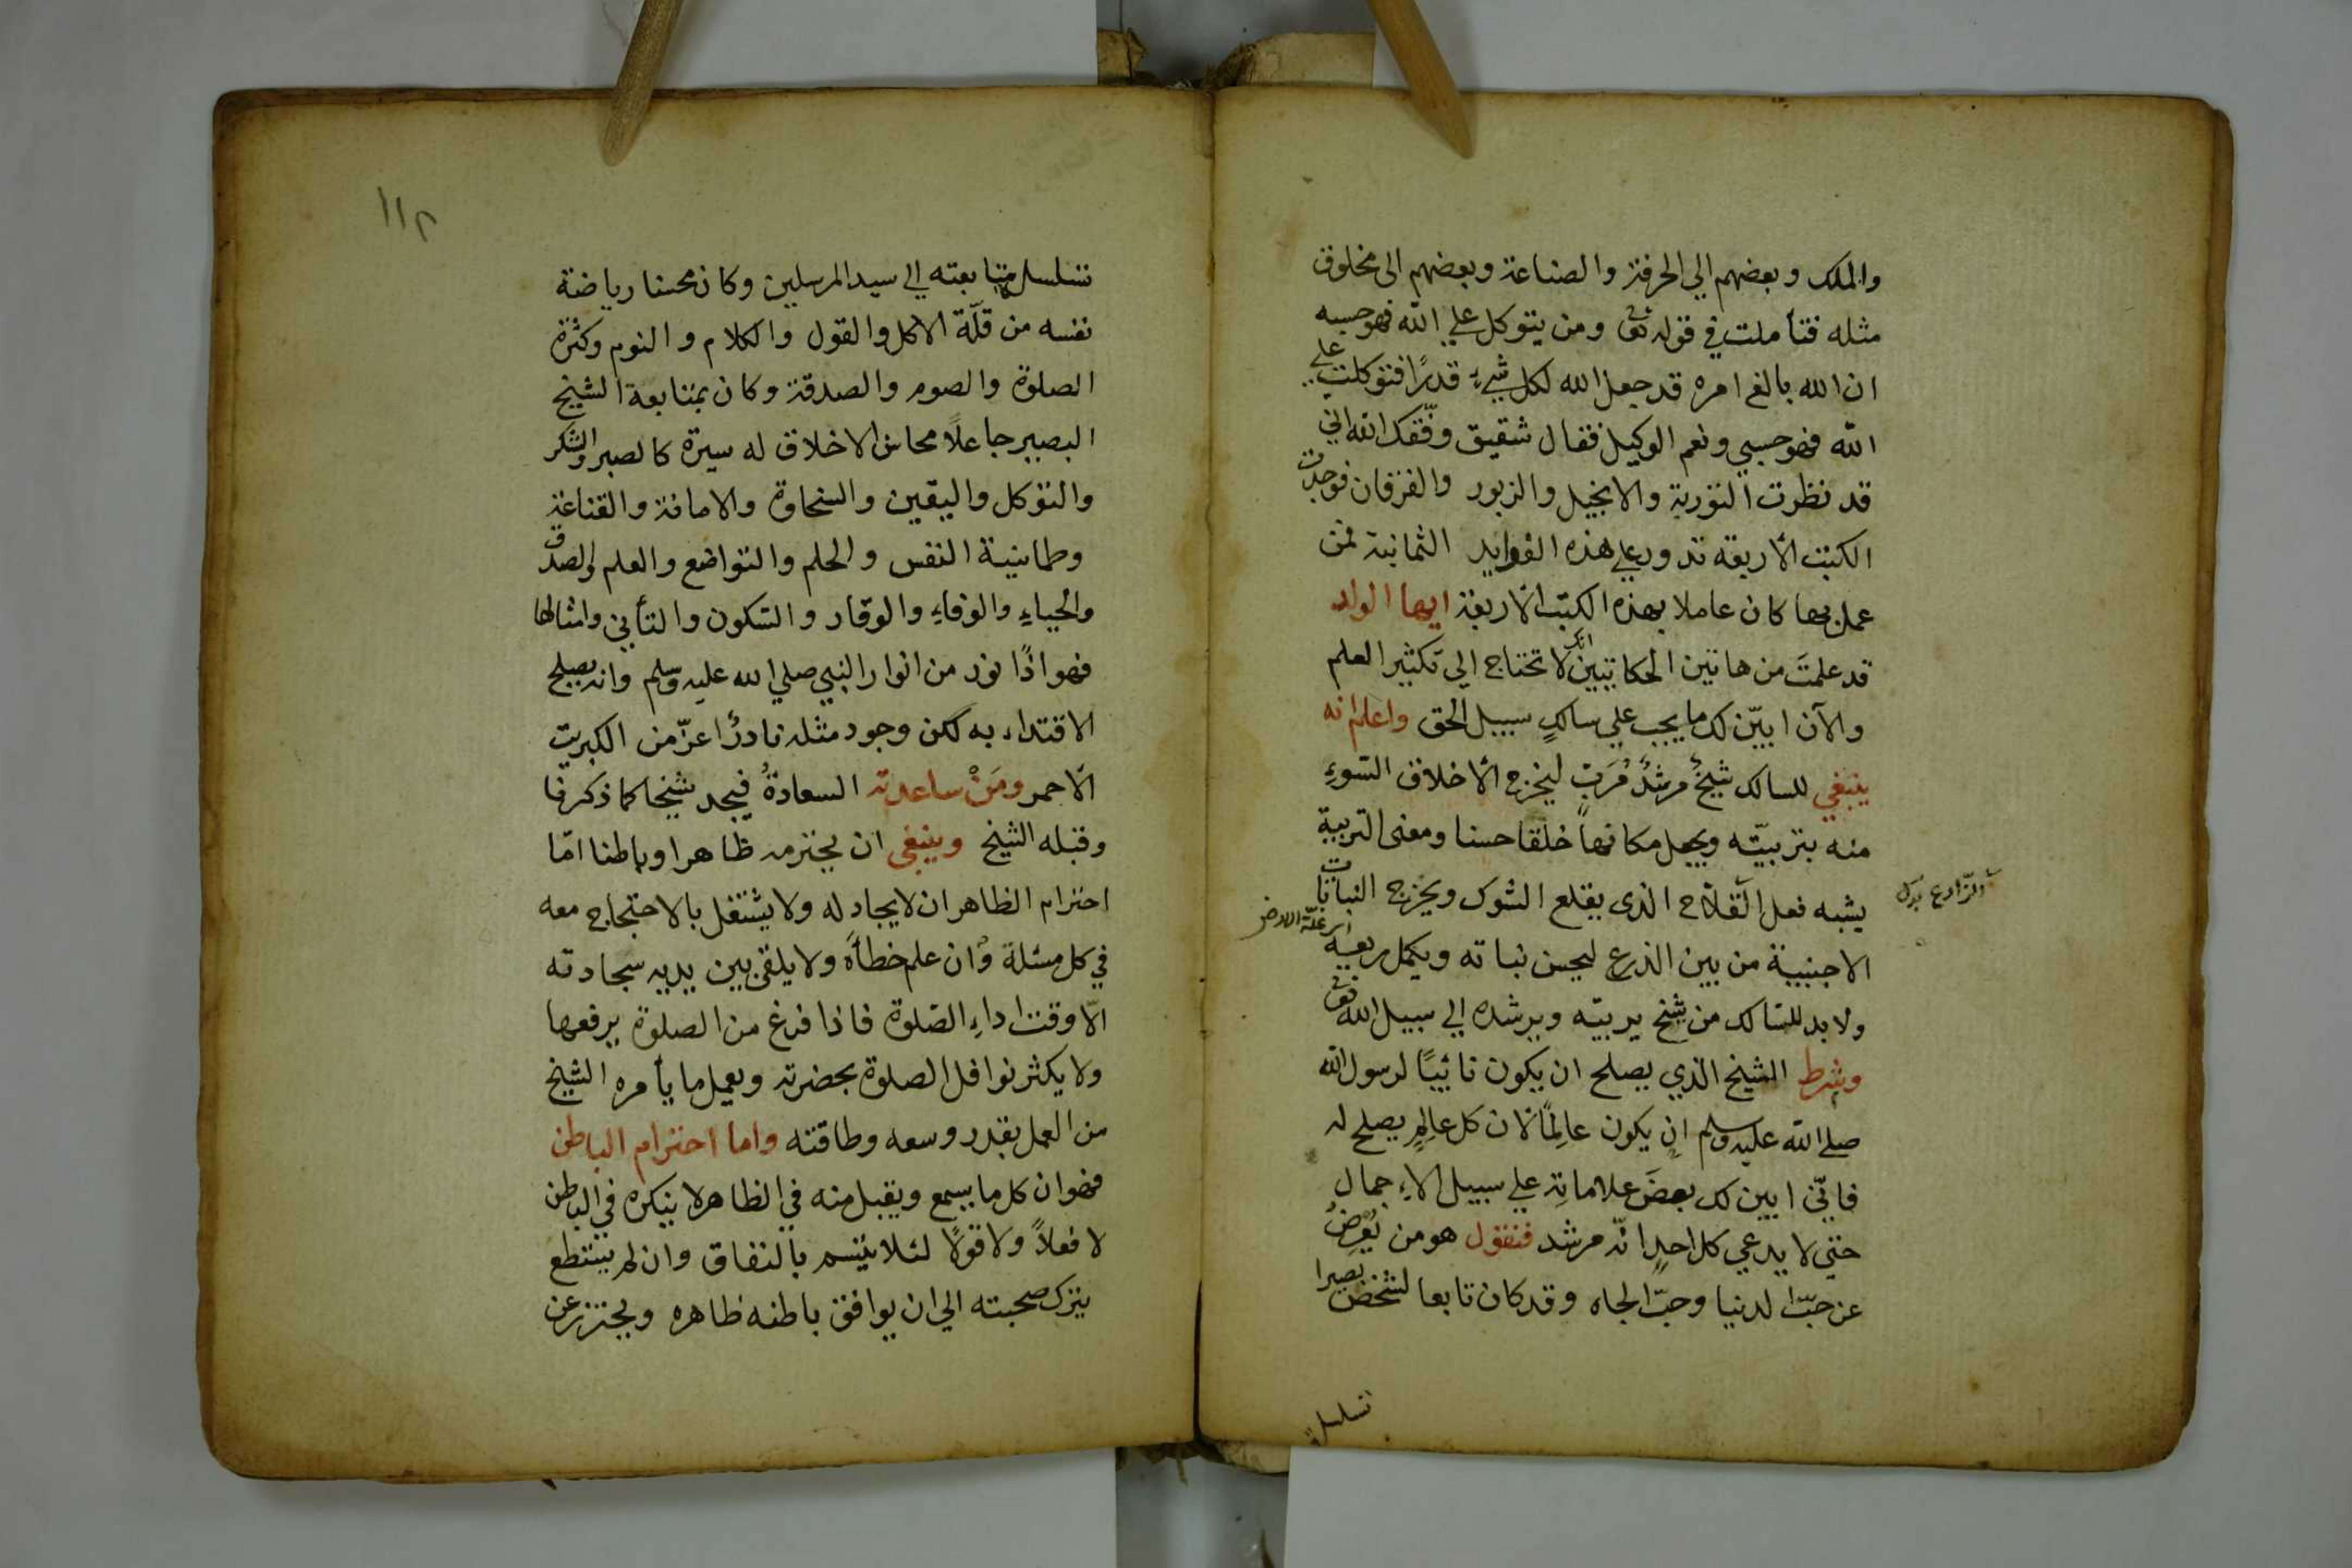 والملك وبعضهم الي الحرفة والصناعة وبعضهم الى مخلوق
مثله فتأملت في قوله تعالى ومن يتوكل علي الله فهو حسبه
ان الله بالغ امره قد جعل الله لكل شيء قدرًا فتوكلت علي
الله فهو حسبي ونعم الوكيل فقال شقيق وفّقك الله اني
قد نظرت التورية والانجيل والزبور والفرقان فوجدت
الكتب الأربعة تدور علي هذه الفوايد الثمانية فمن
عمل بها كان عاملا بهذه الكتب الأربعة ايها الولد
قد علمتَ من هاتين الحكايتين انك لا تحتاج الي تكثير العلم
والآن ابيّن لك ما يجب علي سالكِ سبيل الحق واعلم انه
ينبغي للسالك شيخٌ مرشدٌ مُرَبٍّ ليخرج الأخلاق السّوءِ
منه بتربيّته ويجعل مكانهاً خلقا حسنا ومعنى التربية
يشبه فعل الفَلاّح الذى يقلع الشوك ويخرج النباتات
الزّارع بدل
الاجنبية من بين الذرع ليحسن نباته ويكمل ريعه
اى غلّة الارض
ولا بد للسّالك من شيخ يربيّه ويرشده الي سبيل الله تعالى
وشرط الشيخ الّذي يصلح ان يكون نائبًا لرسول الله
صلي الله عليه وسلم ان يكون عالِمًا لان كل عالِمٍ يصلح له
فانّي ابين لك بعضَ علاماتِهِ علي سبيل الاِجمال
حتي لا يدعي كل احدٍ انّه مرشد فنقول هو من يُعْرِضُ
عن حبّ الدنيا وحبّ الجاه وقد كان تابعا لشخص بصيرا
تسلسل
١١٢
تسلسل متابعته الي سيد المرسلين وكان محسنا رياضة
نفسه من قلّة الاكل والقول والكلام والنوم وكثرة
الصلوة والصوم والصدقة وكان بمتابعة الشيخ
البصير جاعلًا محاسن الاخلاق له سيرة كالصبر والشكر
والتوكل واليقين والسخاوة والامانة والقناعة
وطمانينة النفس والحلم والتواضع والعلم والصدق
والحياءِ والوفاءِ والوقار والسّكون والتأني وامثالها
فهو اذًا نور من انوار النبي صلي الله عليه وسلم وانه يصلح
الاقتداء به لكن وجود مثله نادرٌ اعزّ من الكبريت
الاحمر ومَنْ ساعدته السعادةُ فيجد شيخا كما ذكرنا
وقبله الشيخ وينبغي ان يحترمه ظاهرا وباطنا امّا
احترام الظاهر ان لا يجادله ولا يشتغل بالاحتجاج معه
في كل مسئلة وَان علم خطأَهُ ولا يلقى بين يديه سجادته
الّا وقت اداءِ الصّلوة فاذا فرغ من الصلوة يرفعها
ولا يكثر نوافل الصلوة بحضرته ويعمل ما يأمره الشيخ
من العمل بقدر وسعه وطاقته واما احترام الباطن
فهو ان كل ما يسمع ويقبل منه في الظاهر لا ينكره في الباطن
لا فعلاً ولا قولًا لئلا يتسم بالنفاق وان لم يستطع
يترك صحبته الي ان يوافق باطنه ظاهره ويحترز عن